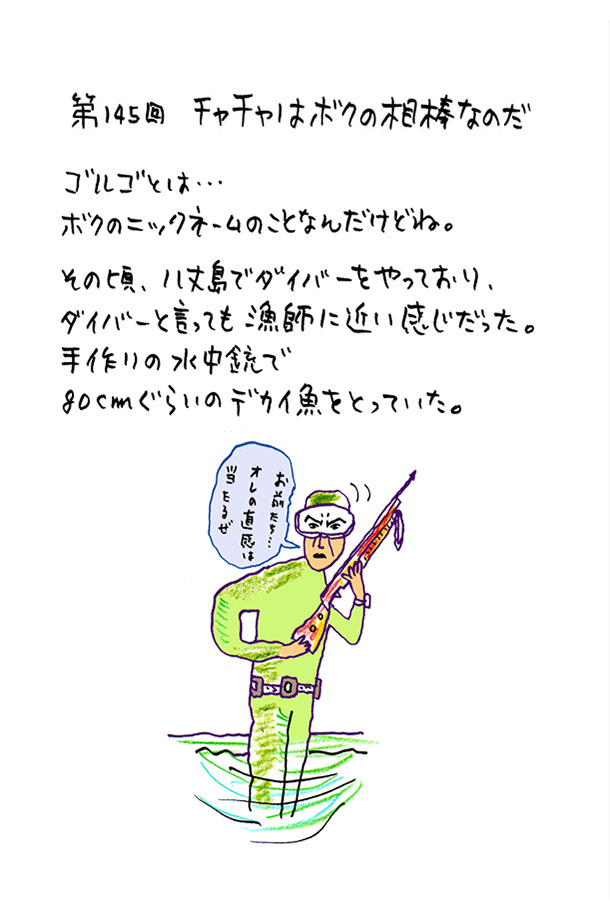 第145回 チャチャはボクの相棒なのだ
ゴルゴとは…
ボクのニックネームのことなんだけどね。
その頃、八丈島でダイバーをやっており、
ダイバーと言っても漁師に近い感じだった。
手作りの水中銃で
80cmぐらいのデカイ魚をとっていた。
お前たち…
オレの直感は
当たるぜ